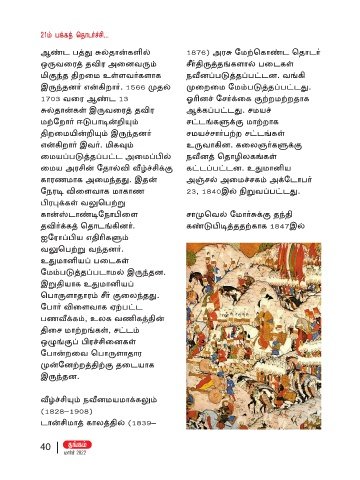 21ம் பக்கத் தொடர்ச்சி...
ஆண்ட பத்து சுல்தான்களில்
ஒருவரைத் தவிர அனைவரும்
மிகுந்த திறமை உள்ளவர்களாக
இருந்தனர் என்கிறார். 1566 முதல்
1703 வரை ஆண்ட 13
சுல்தான்கள் இருவரைத் தவிர
மற்றோர் ஈடுபாடின்றியும்
திறமையின்றியும் இருந்தனர்
என்கிறார் இவர். மிகவும்
மையப்படுத்தப்பட்ட அமைப்பில்
மைய அரசின் தோல்வி வீழ்ச்சிக்கு
காரணமாக அமைந்தது. இதன்
நேரடி விளைவாக மாகாண
பிரபுக்கள் வலுபெற்று
கான்ஸ்டாண்டிநோபிளை
தவிர்க்கத் தொடங்கினர்.
ஐரோப்பிய எதிரிகளும்
வலுபெற்று வந்தனர்.
உதுமானியப் படைகள்
மேம்படுத்தப்படாமல் இருந்தன.
இறுதியாக உதுமானியப்
பொருளாதாரம் சீர் குலைந்தது.
போர் விளைவாக ஏற்பட்ட
பணவீக்கம், உலக வணிகத்தின்
திசை மாற்றங்கள், சட்டம்
ஒழுங்குப் பிரச்சினைகள்
போன்றவை பொருளாதார
முன்னேற்றத்திற்கு தடையாக
இருந்தன.
வீழ்ச்சியும் நவீனமயமாக்கலும்
(1828–1908)
டான்சிமாத் காலத்தில் (1839–
1876) அரசு மேற்கொண்ட தொடர்
சீர்திருத்தங்களால் படைகள்
நவீனப்படுத்தப்பட்டன. வங்கி
முறைமை மேம்படுத்தப்பட்டது.
ஓரினச் சேர்க்கை குற்றமற்றதாக
ஆக்கப்பட்டது. சமயச்
சட்டங்களுக்கு மாற்றாக
சமயச்சார்பற்ற சட்டங்கள்
உருவாகின. கலைஞர்களுக்கு
நவீனத் தொழிலகங்கள்
கட்டப்பட்டன. உதுமானிய
அஞ்சல் அமைச்சகம் அக்டோபர்
23, 1840இல் நிறுவப்பட்டது.
சாமுவெல் மோர்சுக்கு தந்தி
கண்டுபிடித்ததற்காக 1847இல்
40
மார்ச் 2022